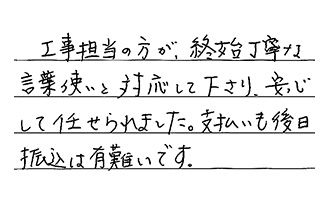 工事担当の方が、終始丁寧な
言葉使いと対応して下さり、安心
して任せられました。支払いも後日
振込は有難いです。